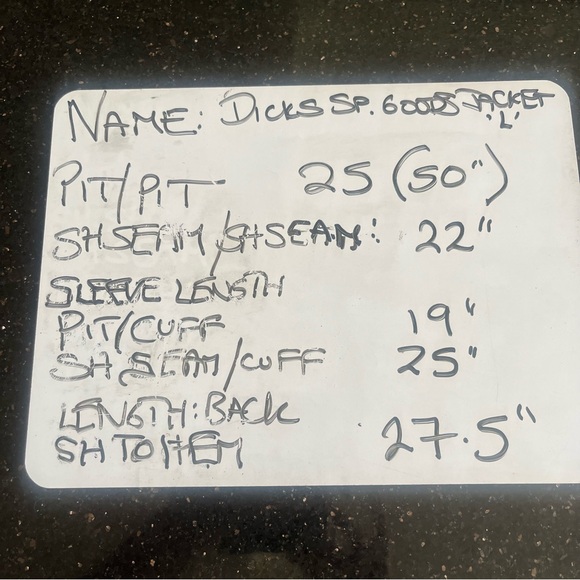 NAME: DICKS SP. GOODS JACKET
'L'
PIT/PIT 25 (50")
SHSEAM/SHSEAM: 22"
SLEEVE LENGTH
PIT/CUFF 19"
SH SEAM/CUFF 25"
LENGTH: BACK
SH TO HEM 27.5"